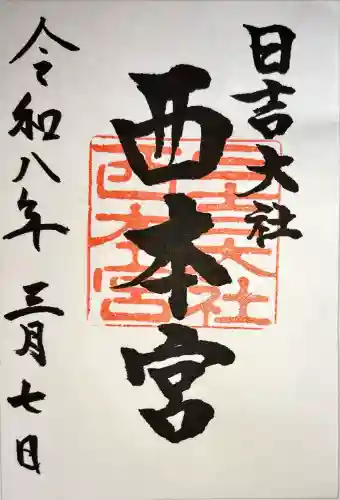 日吉大社
西本宮
令和八年 三月七日
日吉大社
西本宮